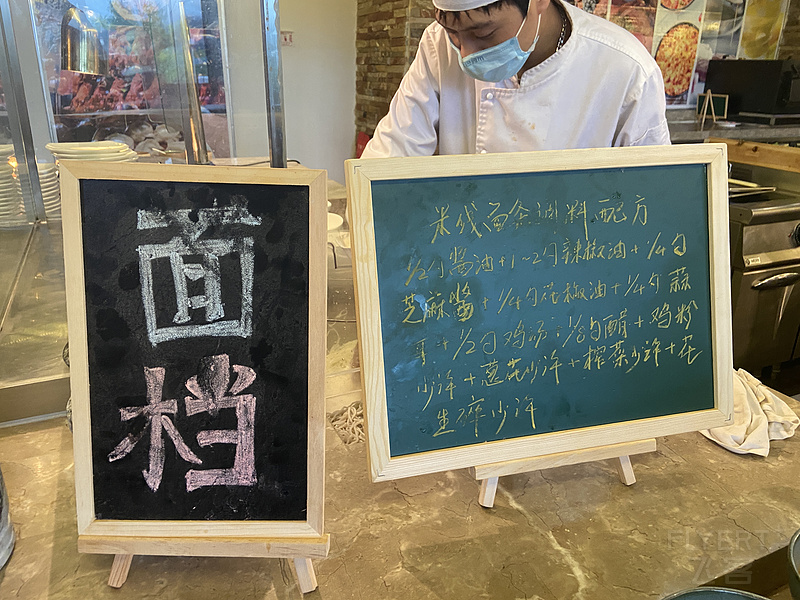 面
档
米线面食调料配方
1/2勺酱油+1~2勺辣椒油+1/4勺
芝麻酱+1/4勺花椒油+1/4勺蒜
1/2勺鸡汤+1/8勺醋+鸡粉
少许+葱花少许+榨菜少许+花
生碎少许
FLYERT
飞客